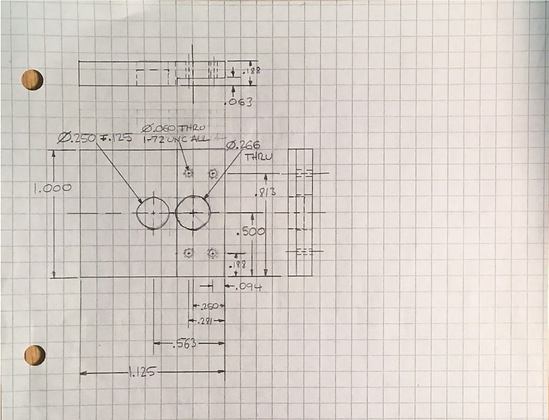 .188
.063
Ø.250 ↧.125
Ø.060 THRU
1-72 UNC ALL
Ø.266
THRU
1.000
.813
.500
.188
.094
.250
.281
.563
1.125